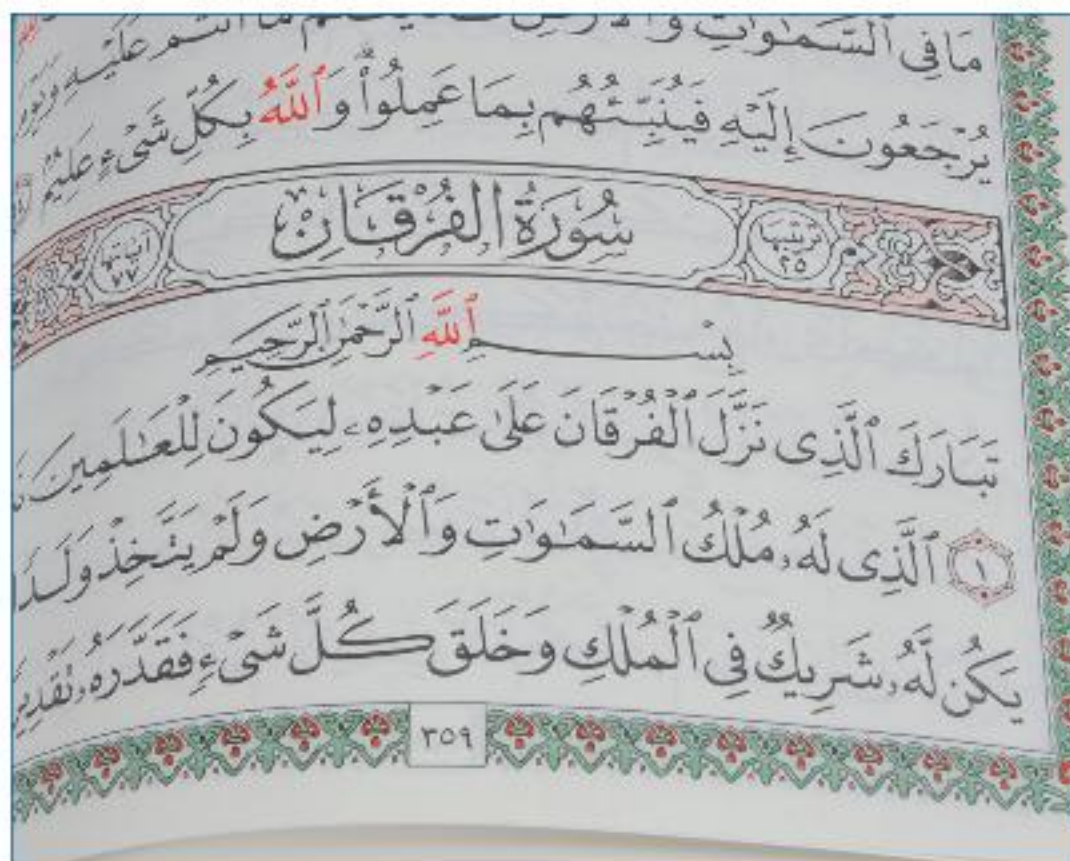 مَا فِي السَّمَٰوَٰتِ وَالْأَرْضِ مَا أَنتُمْ عَلَيْهِ وَيَوْمَ
يُرْجَعُونَ إِلَيْهِ فَيُنَبِّئُهُم بِمَا عَمِلُوا۟ ۗ وَٱللَّهُ بِكُلِّ شَىْءٍ عَلِيمٌ
ترتيبها ٢٥ سُورَةُ الْفُرْقَانِ آياتها ٧٧
بِسْمِ ٱللَّهِ ٱلرَّحْمَٰنِ ٱلرَّحِيمِ
تَبَارَكَ ٱلَّذِى نَزَّلَ ٱلْفُرْقَانَ عَلَىٰ عَبْدِهِۦ لِيَكُونَ لِلْعَٰلَمِينَ
١ ٱلَّذِى لَهُۥ مُلْكُ ٱلسَّمَٰوَٰتِ وَٱلْأَرْضِ وَلَمْ يَتَّخِذْ وَلَدًا
يَكُن لَّهُۥ شَرِيكٌ فِى ٱلْمُلْكِ وَخَلَقَ كُلَّ شَىْءٍ فَقَدَّرَهُۥ تَقْدِيرًا
٣٥٩